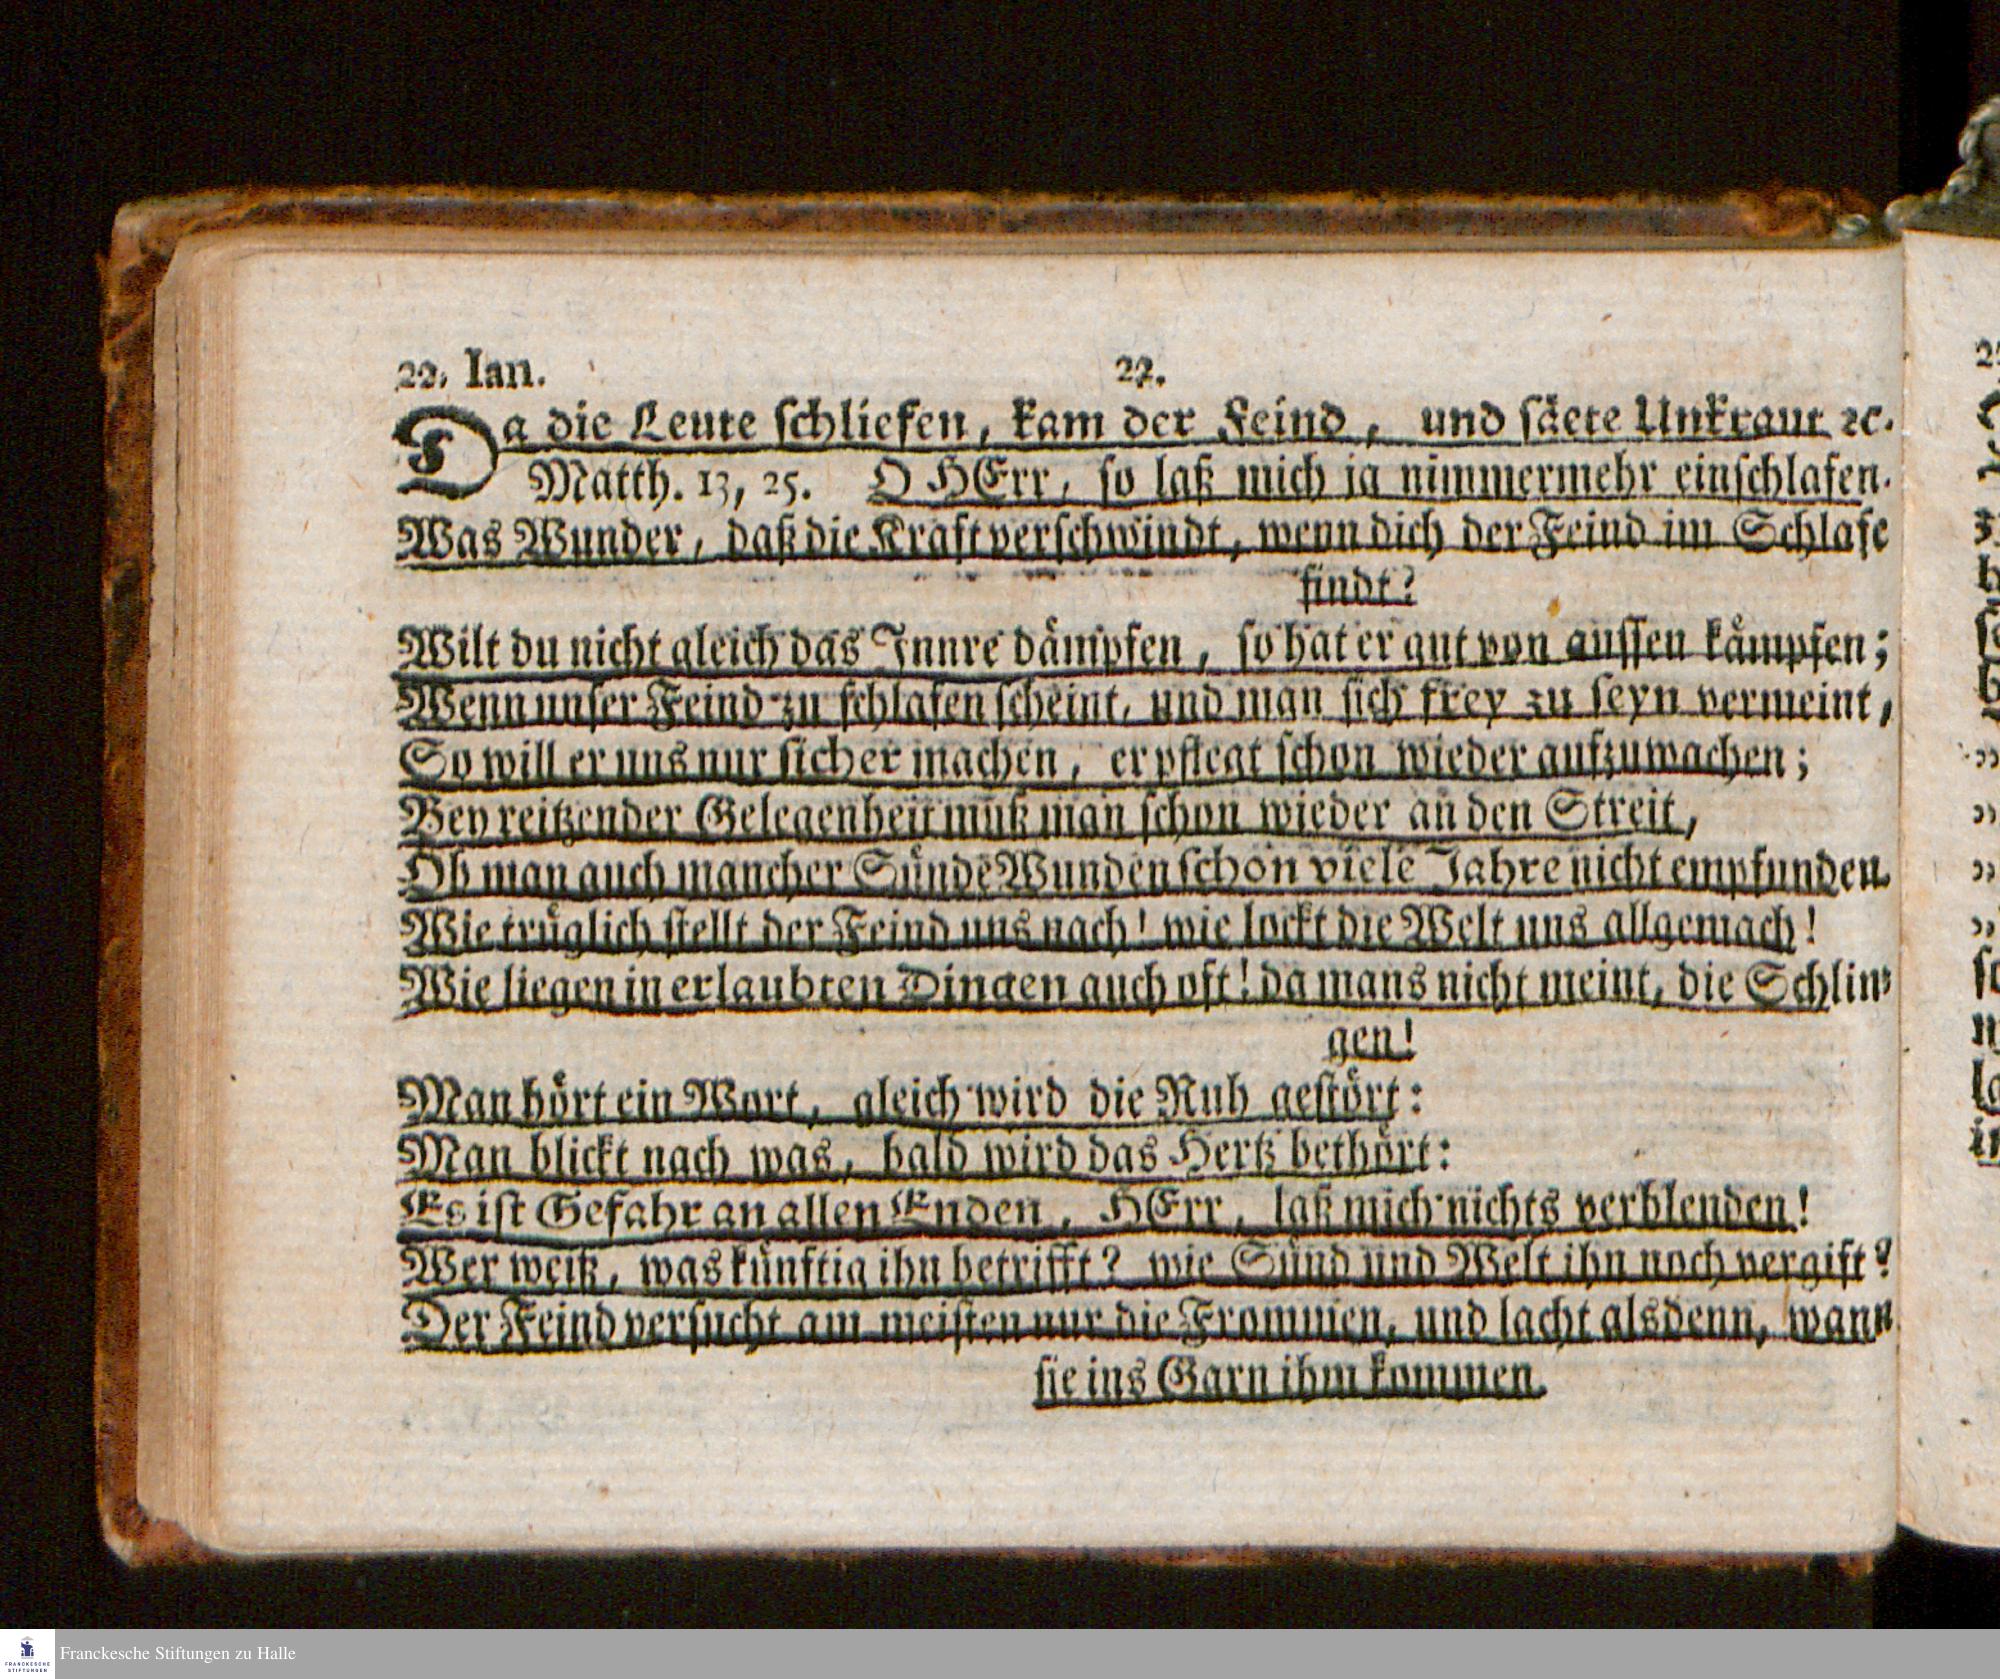 22. Ian. 22.
Da die Leute schliefen, kam der Feind, und säete Unkraut ꝛc.
Matth. 13, 25. O HErr, so laß mich ja nimmermehr einschlafen.
Was Wunder, daß die Kraft verschwindt, wenn dich der Feind im Schlafe
findt?
Wilt du nicht gleich das Innre dämpfen, so hat er gut von aussen kämpfen;
Wenn unser Feind zu schlafen scheint, und man sich frey zu seyn vermeint,
So will er uns nur sicher machen, er pflegt schon wieder aufzuwachen;
Bey reitzender Gelegenheit muß man schon wieder an den Streit,
Ob man auch mancher Sünde Wunden schon viele Jahre nicht empfunden.
Wie trüglich stellt der Feind uns nach! wie lockt die Welt uns allgemach!
Wie liegen in erlaubten Dingen auch oft! da mans nicht meint, die Schlin-
gen!
Man hört ein Wort, gleich wird die Ruh gestört:
Man blickt nach was, bald wird das Hertz bethört:
Es ist Gefahr an allen Enden, HErr, laß mich nichts verblenden!
Wer weiß, was künftig ihn betrifft? wie Sünd und Welt ihn noch vergift?
Der Feind versucht am meisten nur die Frommen, und lacht alsdenn, wann
sie ins Garn ihm kommen.
FRANCKESCHE STIFTUNGEN
Franckesche Stiftungen zu Halle